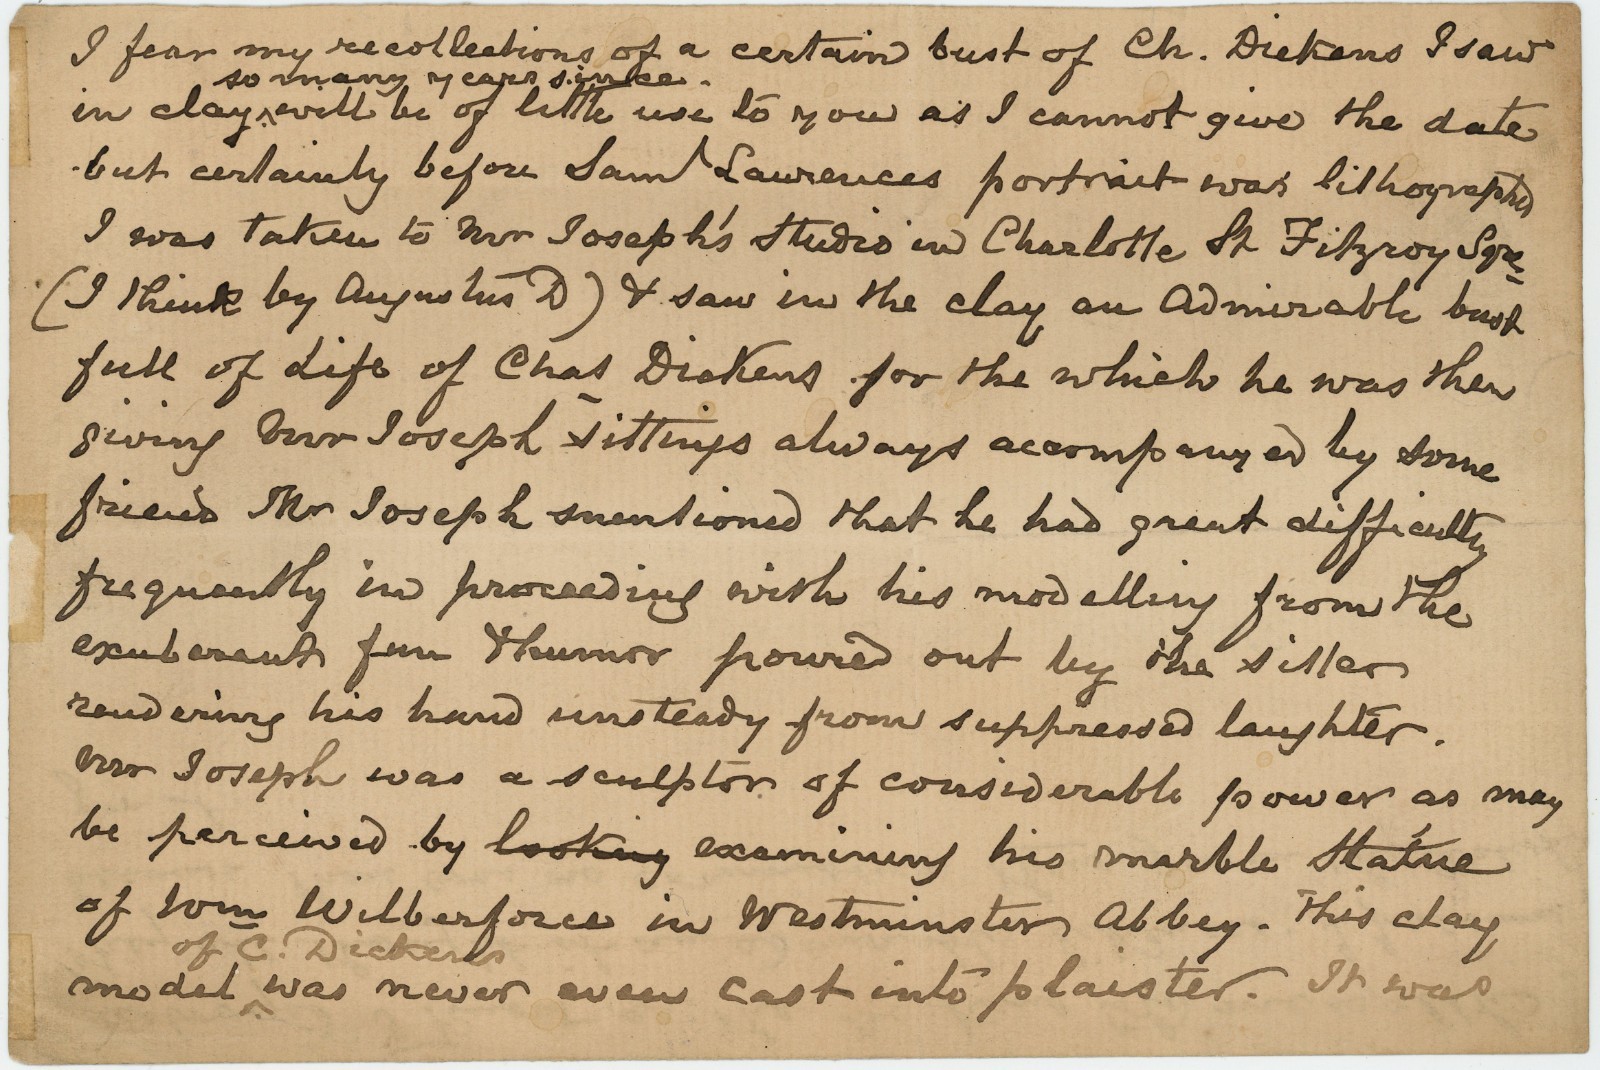 I fear my recollections of a certain bust of Ch. Dickens I saw
so many years since.
in clay ^ will be of little use to you as I cannot give the date
but certainly before Saml Lawrences portrait was lithographed
I was taken to Mr Joseph's Studio in Charlotte St Fitzroy Sqre
(I think by Augustus D) & saw in the clay an Admirable bust
full of Life of Chas Dickens for the which he was then
giving Mr Joseph sittings always accompanyed by some
friend Mr Joseph mentioned that he had great difficulty
frequently in proceeding with his modelling from the
exuberant fun & humor poured out by the sitter
rendering his hand unsteady from suppressed laughter.
Mr Joseph was a sculptor of considerable power as may
be perceived by looking examining his marble Statue
of Wm Wilberforce in Westminster Abbey. This clay
of C. Dickens
model ^ was never even cast into plaister. It was